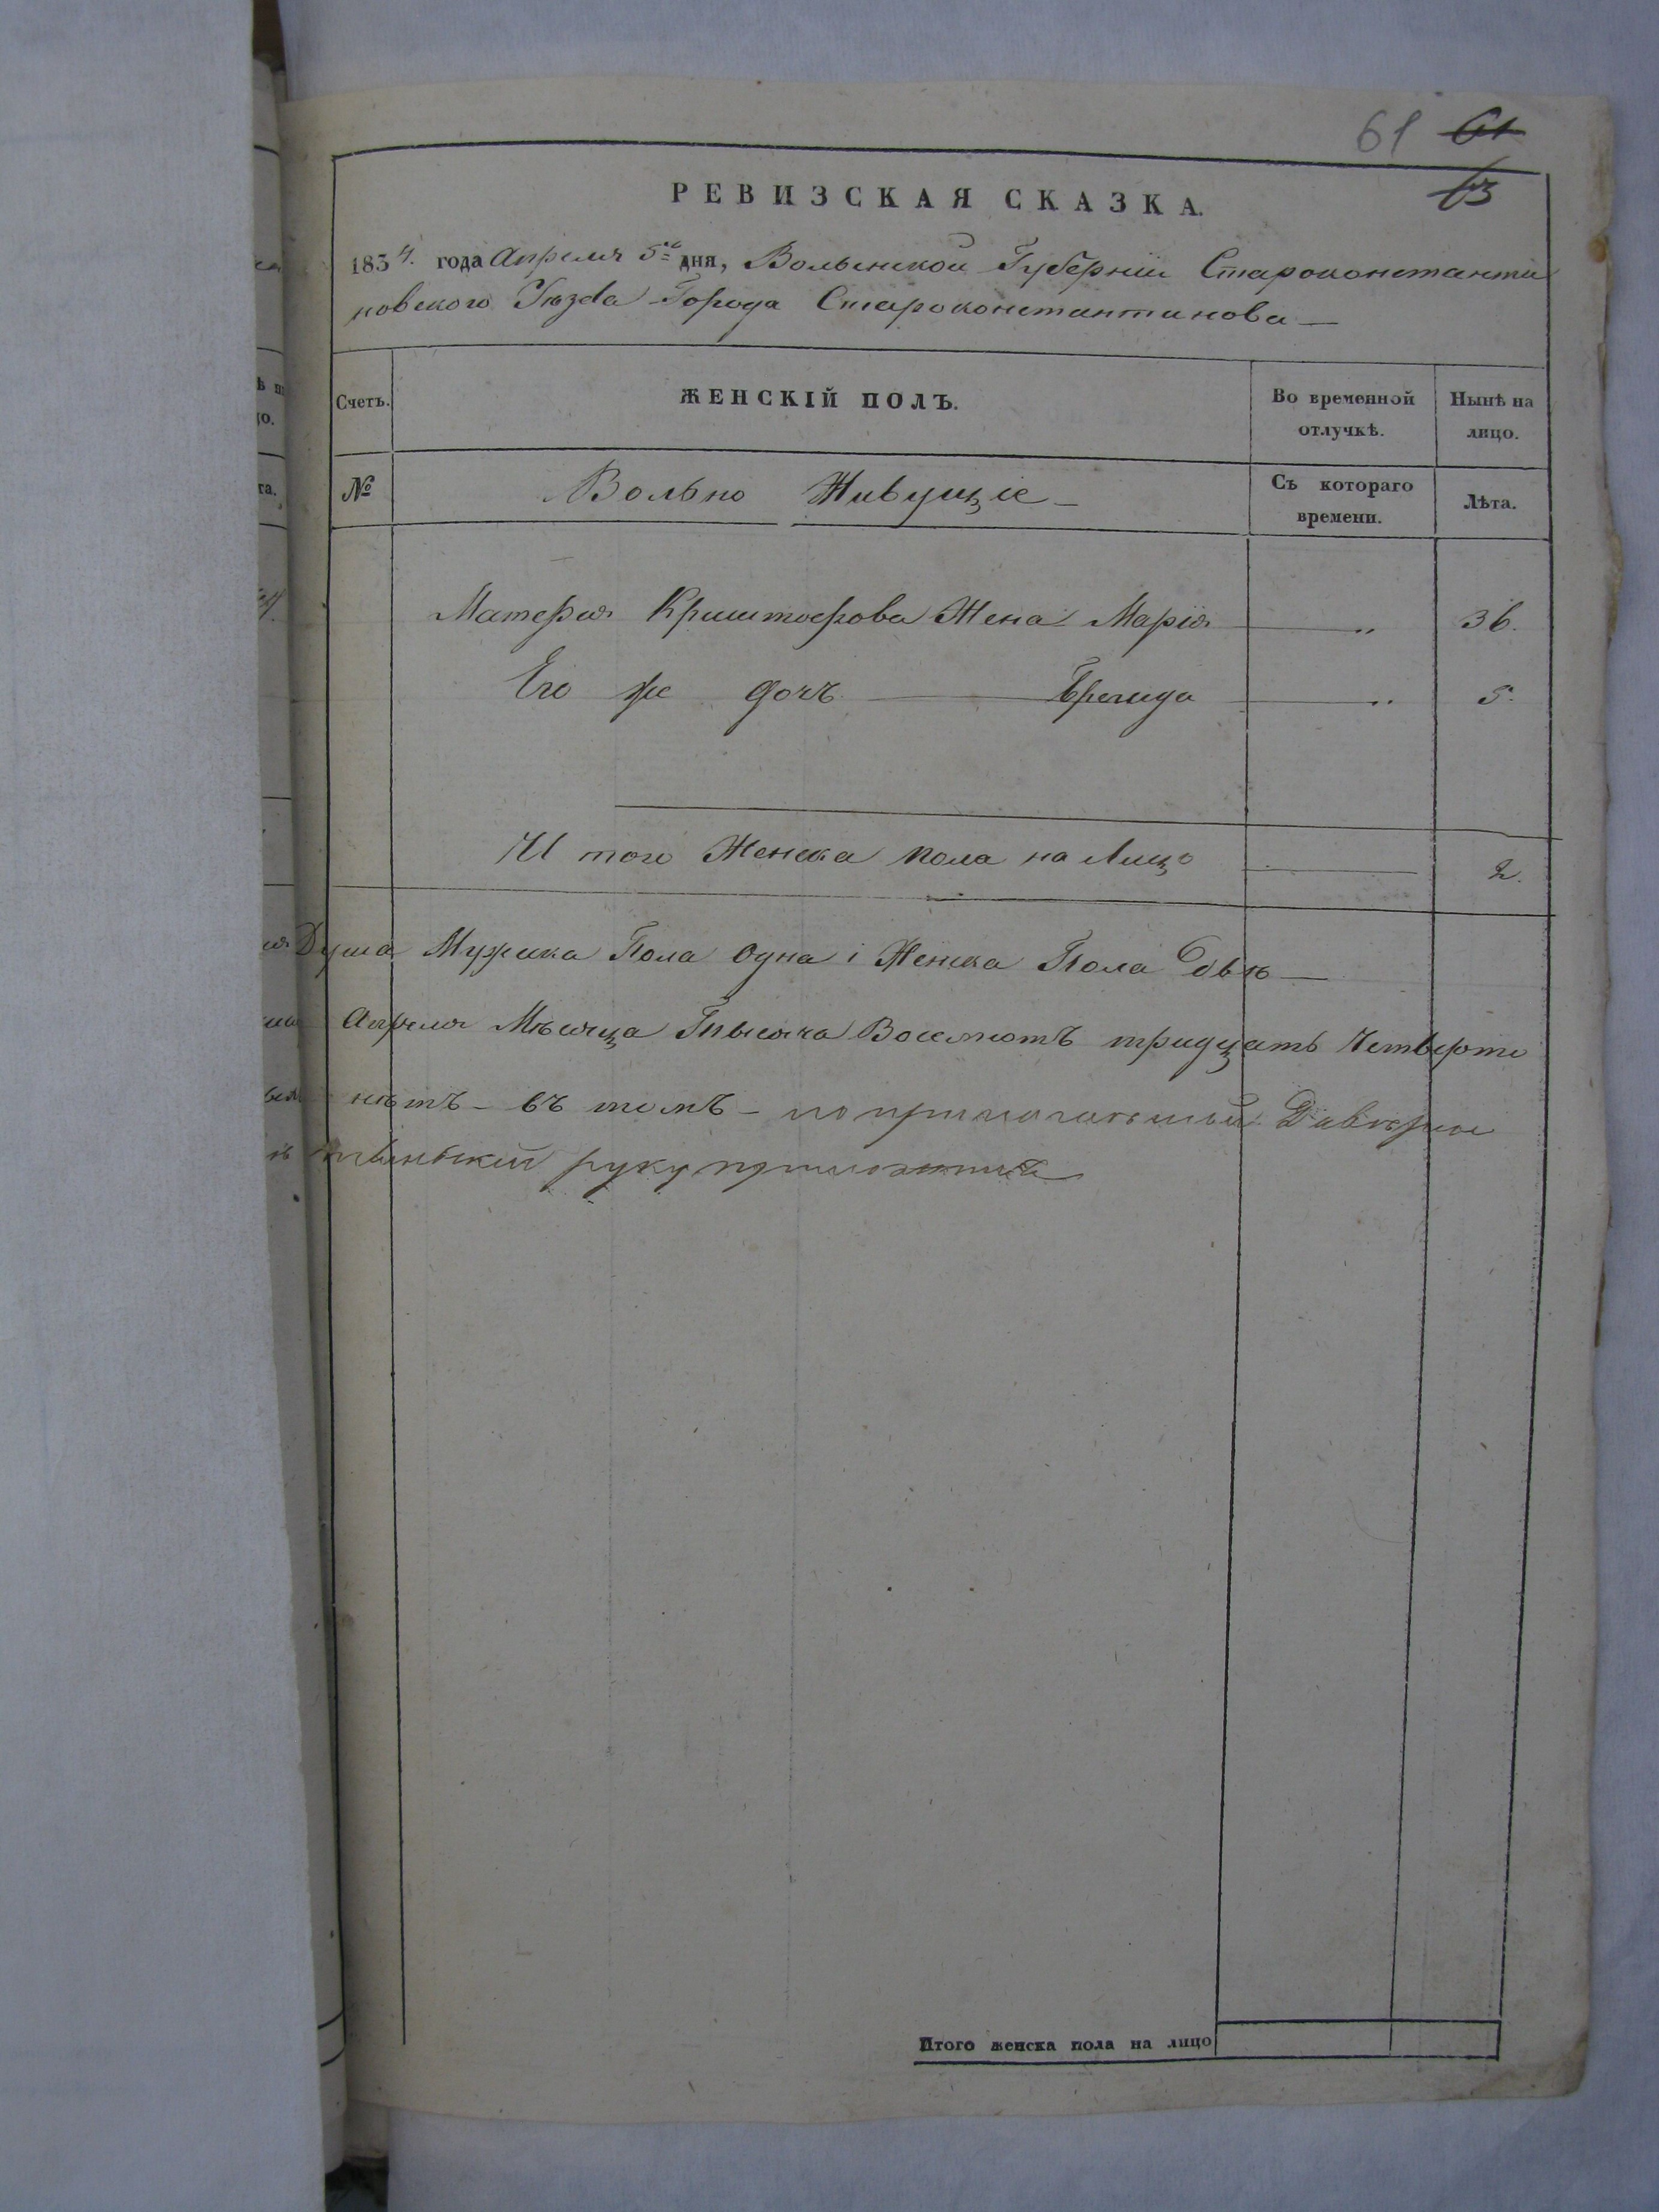 61 61
63
РЕВИЗСКАЯ СКАЗКА.
1834. года Апреля 5го дня, Волынской Губерніи Староконстанти
новского Уѣзда Города Староконстантинова —
Счетъ. ЖЕНСКІЙ ПОЛЪ. Во временной отлучкѣ. Нынѣ на лицо.
№ Вольно Живущіе — Съ котораго времени. Лѣта.
Криштофова Жена Марія — „ 36.
Его же дочъ — Бригида — „ 5.
И того Женска пола на Лицо — 2.
Душа Мужска Пола Одна і Женска Пола Двѣ —
Апреля Мѣсяца Тысяча Восемсотъ тридцать Четверто
нѣтъ — въ томъ —
руку приложилъ
Итого женска пола на лицо